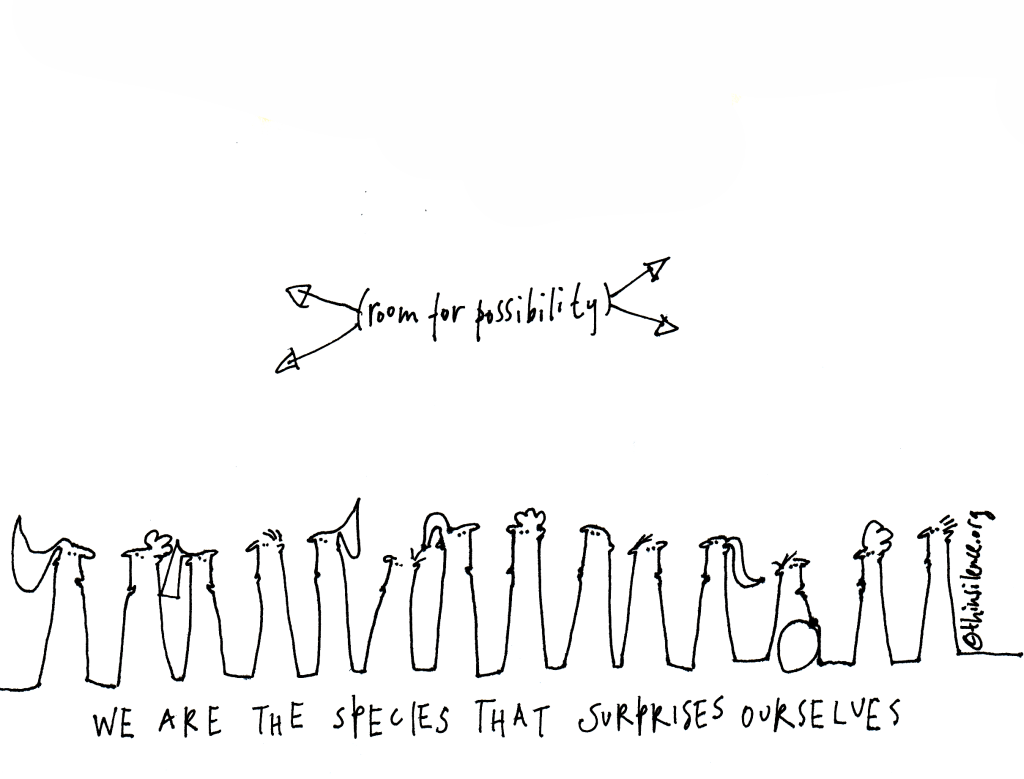 (room for possibility)
©thinsilence.org
WE ARE THE SPECIES THAT SURPRISES OURSELVES